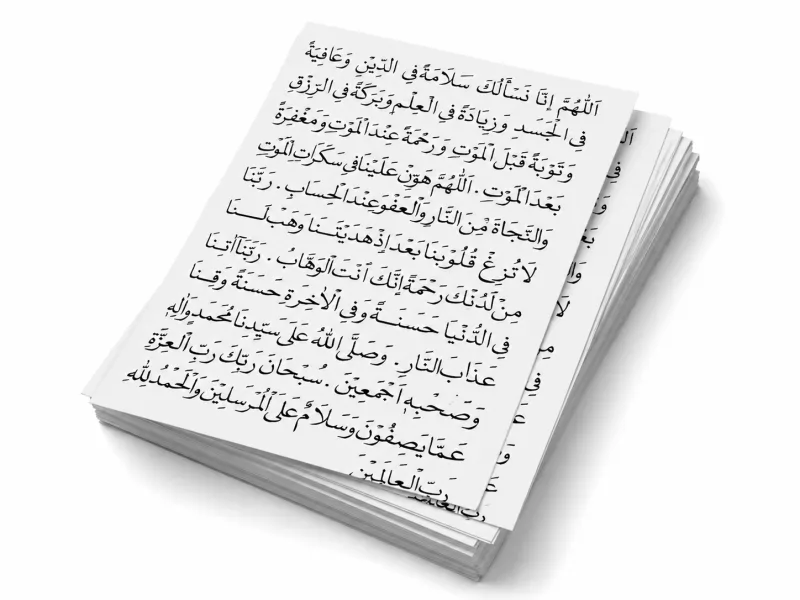 اَللّٰهُمَّ اِنَّا نَسْأَلُكَ سَلَامَةً فِي الدِّيْنِ وَعَافِيَةً
فِي الْجَسَدِ وَزِيَادَةً فِي الْعِلْمِ وَبَرَكَةً فِي الرِّزْقِ
وَتَوْبَةً قَبْلَ الْمَوْتِ وَرَحْمَةً عِنْدَ الْمَوْتِ وَمَغْفِرَةً
بَعْدَ الْمَوْتِ . اَللّٰهُمَّ هَوِّنْ عَلَيْنَا فِي سَكَرَاتِ الْمَوْتِ
وَالنَّجَاةَ مِّنَ النَّارِ وَالْعَفْوَ عِنْدَ الْحِسَابِ . رَبَّنَا
لَا تُزِغْ قُلُوْبَنَا بَعْدَ اِذْ هَدَيْتَنَا وَهَبْ لَنَا
مِنْ لَّدُنْكَ رَحْمَةً اِنَّكَ اَنْتَ الْوَهَّابُ . رَبَّنَا اٰتِنَا
فِي الدُّنْيَا حَسَنَةً وَفِي الْاٰخِرَةِ حَسَنَةً وَقِنَا
عَذَابَ النَّارِ . وَصَلَّى اللّٰهُ عَلَى سَيِّدِنَا مُحَمَدٍ وَاٰلِهٖ
وَصَحْبِهٖ اَجْمَعِيْنَ . سُبْحَانَ رَبِّكَ رَبِّ الْعِزَّةِ
عَمَّا يَصِفُوْنَ وَسَلَامٌ عَلَى الْمُرْسَلِيْنَ وَالْحَمْدُ لِلّٰهِ
رَبِّ الْعَالَمِيْنَ